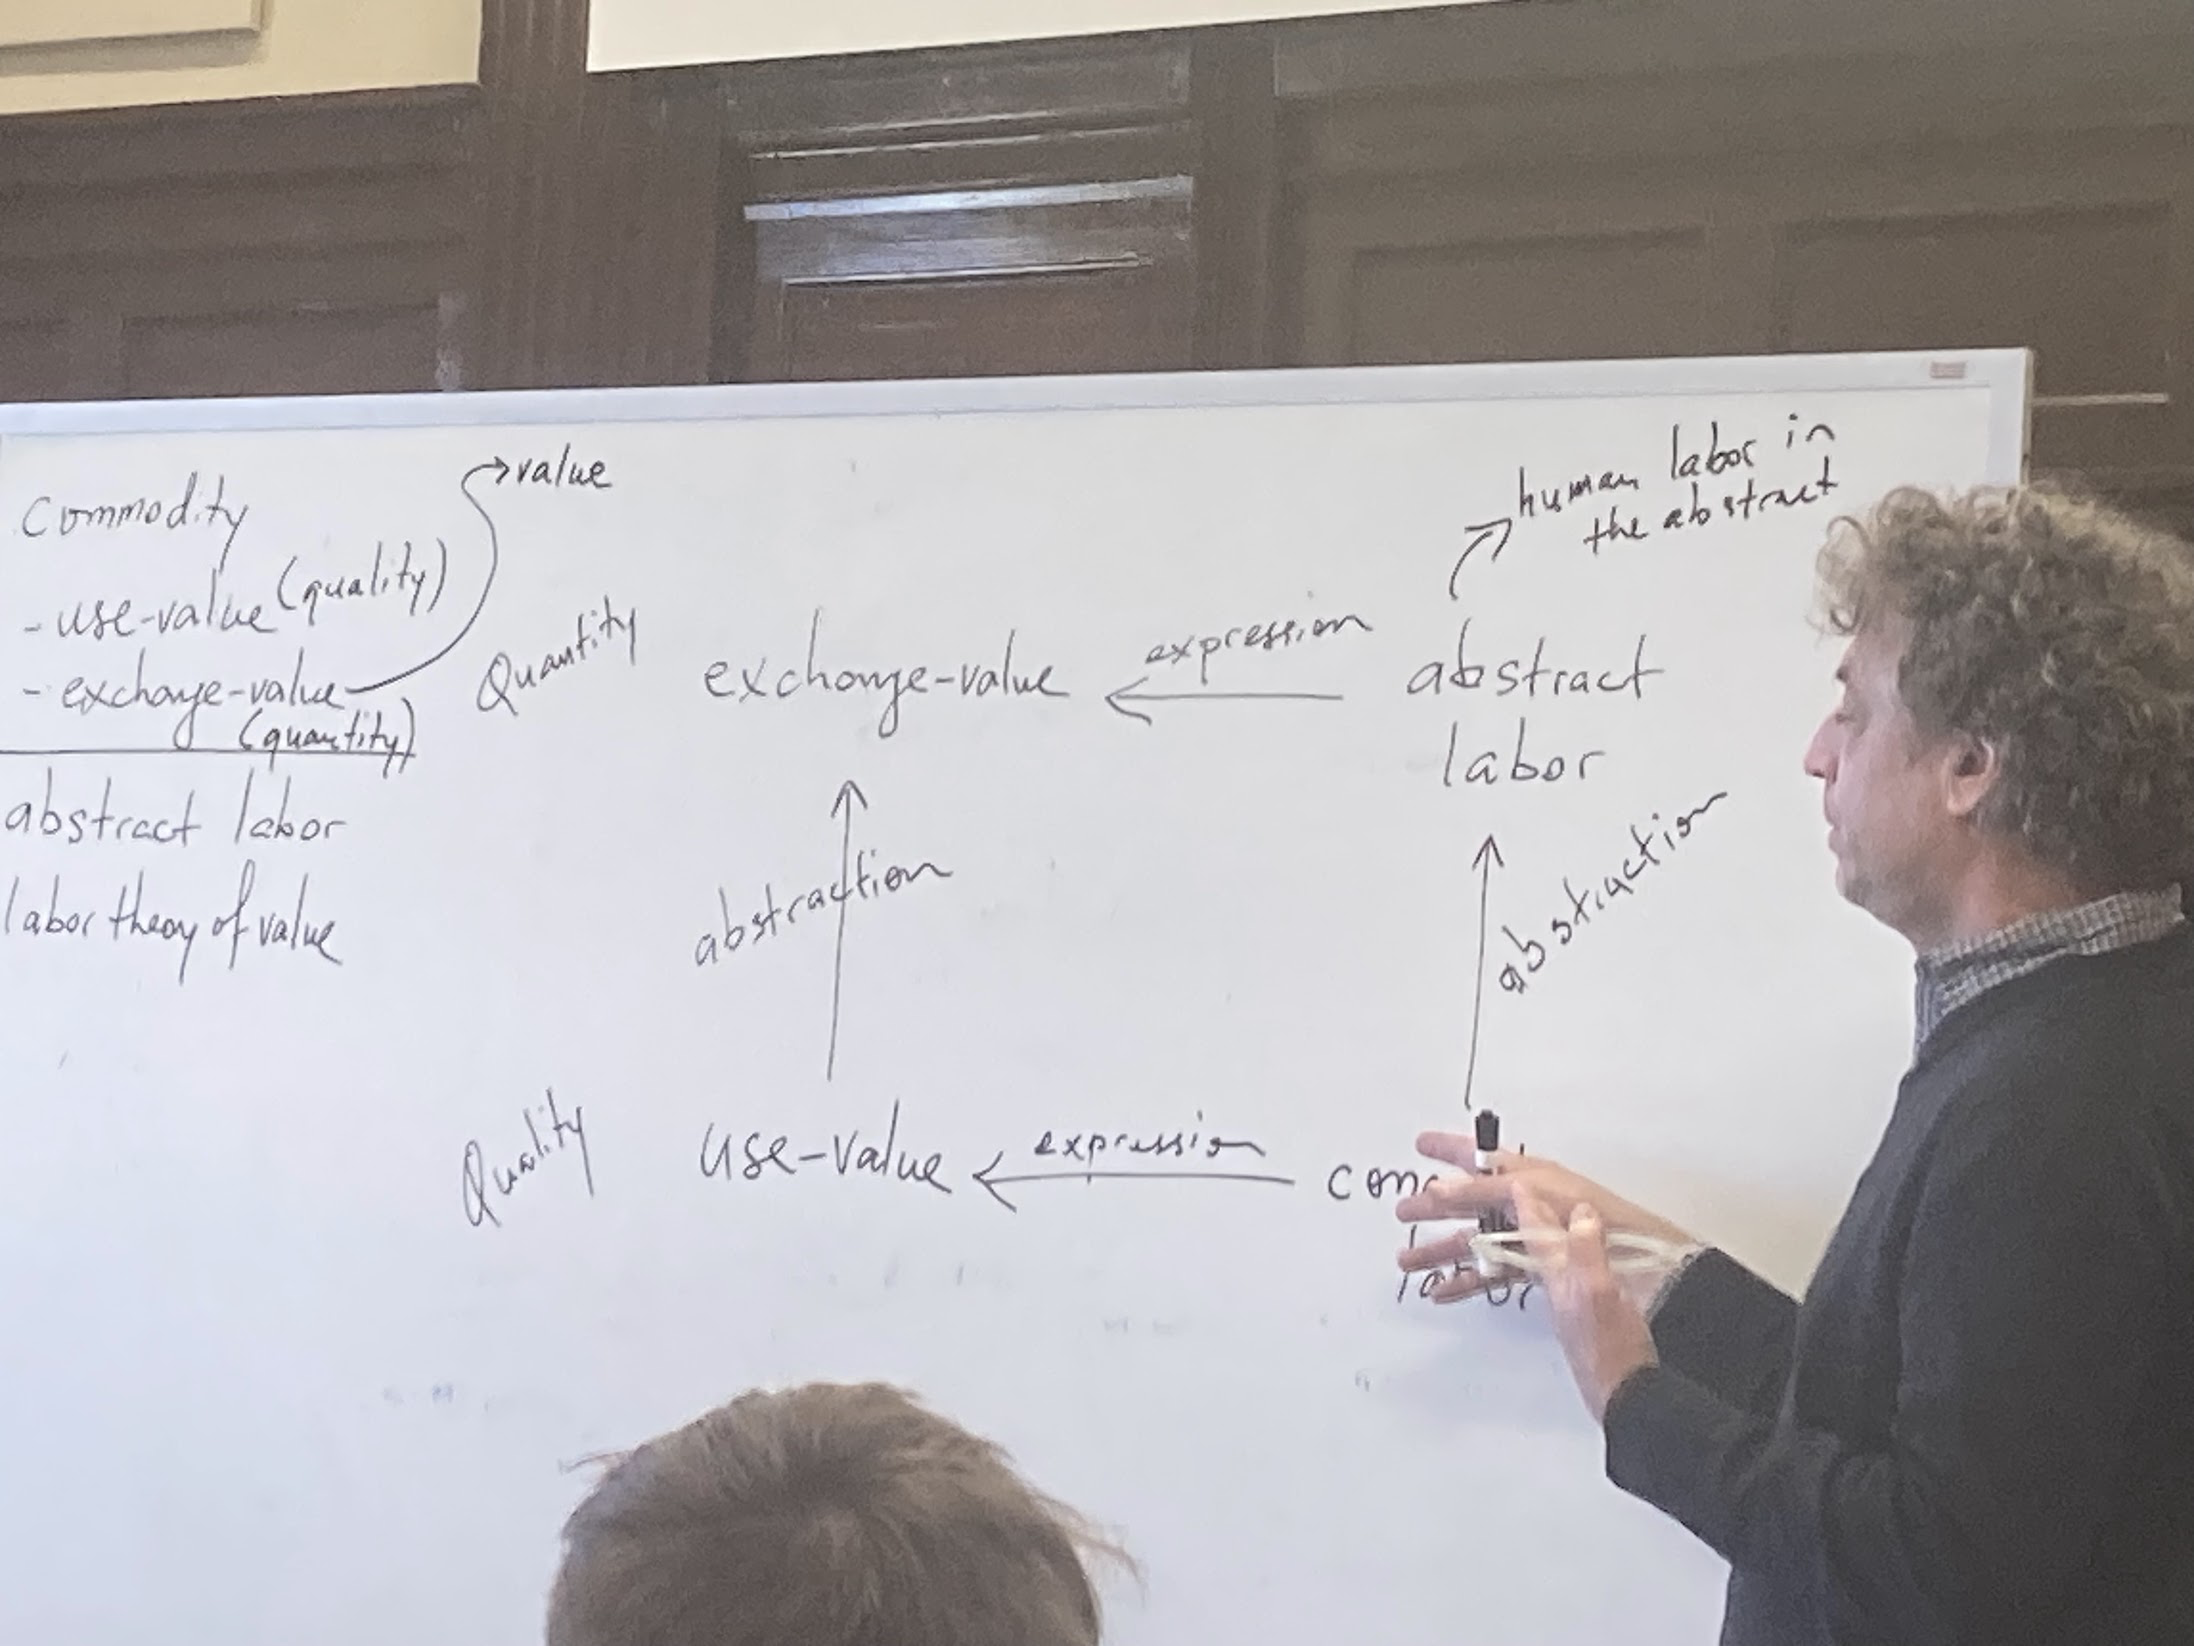 Commodity
- use-value (quality)
- exchange-value
(quantity)
value
abstract labor
labor theory of value
Quantity
exchange-value
expression
abstract
labor
human labor in
the abstract
abstraction
abstraction
Quality
use-value
expression